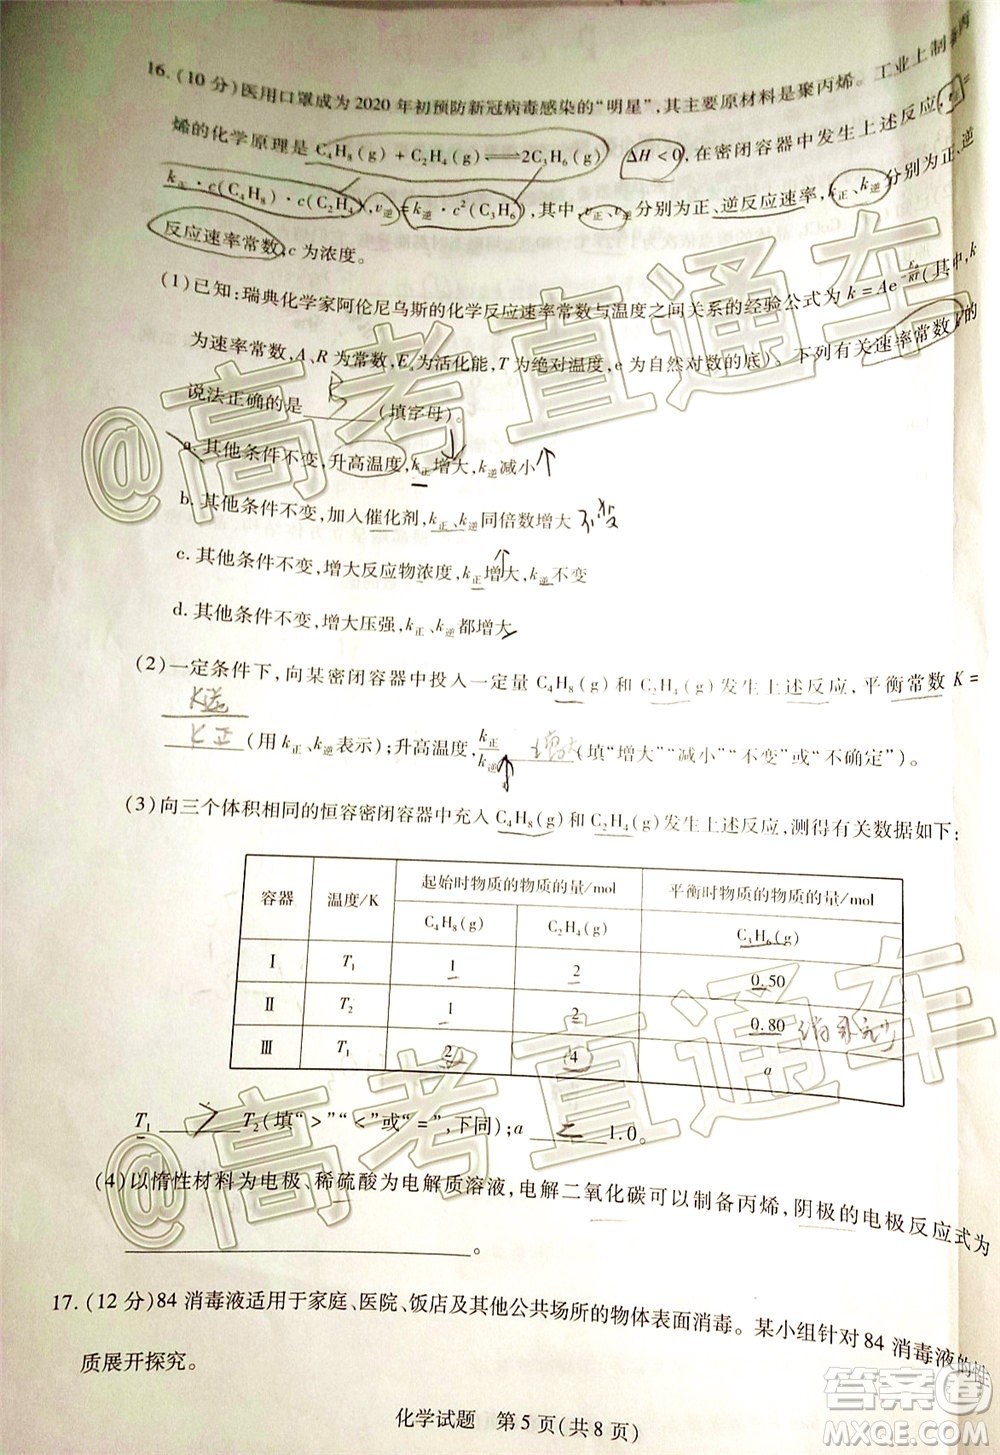 16.(10分)医用口罩成为2020年初预防新冠病毒感染的“明星”,其主要原材料是聚丙烯。工业上制备丙
烯的化学原理是C₄H₈(g)+C₂H₄(g)⇌2C₃H₆(g) ΔH<0,在密闭容器中发生上述反应,
k正·c(C₄H₈)·c(C₂H₄),v逆=k逆·c²(C₃H₆),其中,v正、v逆分别为正、逆反应速率,k正、k逆分别为正、逆
反应速率常数,c为浓度。
(1)已知:瑞典化学家阿伦尼乌斯的化学反应速率常数与温度之间关系的经验公式为k=Ae^(-Ea/RT)(其中,k
为速率常数,A、R为常数,Ea为活化能,T为绝对温度,e为自然对数的底)。下列有关速率常数k的
说法正确的是______(填字母)。
a.其他条件不变,升高温度,k正增大,k逆减小
b.其他条件不变,加入催化剂,k正、k逆同倍数增大 不变
c.其他条件不变,增大反应物浓度,k正增大,k逆不变
d.其他条件不变,增大压强,k正、k逆都增大
(2)一定条件下,向某密闭容器中投入一定量C₄H₈(g)和C₂H₄(g)发生上述反应,平衡常数K=
K逆
K正
______(用k正、k逆表示);升高温度,k正/k逆 增大(填“增大”“减小”“不变”或“不确定”)。
(3)向三个体积相同的恒容密闭容器中充入C₄H₈(g)和C₂H₄(g)发生上述反应,测得有关数据如下:
容器 温度/K 起始时物质的物质的量/mol 平衡时物质的物质的量/mol
C₄H₈(g) C₂H₄(g) C₃H₆(g)
Ⅰ T₁ 1 2 0.50
Ⅱ T₂ 1 2 0.80
Ⅲ T₁ 2 4 a
T₁ > T₂(填“>”“<”或“=”,下同);a = 1.0。
(4)以惰性材料为电极、稀硫酸为电解质溶液,电解二氧化碳可以制备丙烯,阴极的电极反应式为
______。
17.(12分)84消毒液适用于家庭、医院、饭店及其他公共场所的物体表面消毒。某小组针对84消毒液的性
质展开探究。
化学试题 第5页(共8页)
@高考直通车
@高考直通车
答案圈
MXQE.COM